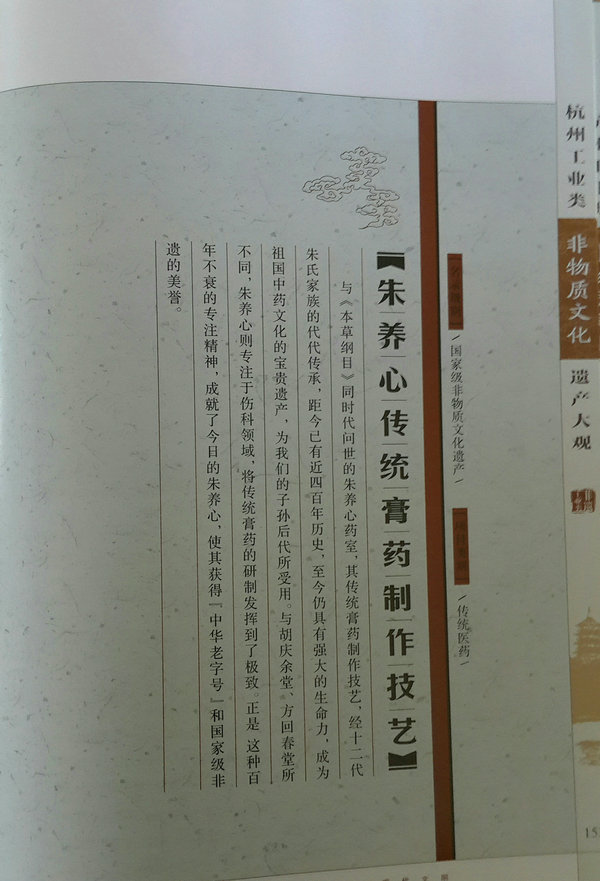 杭州工业类
非物质文化
遗产大观
/ 国家级非物质文化遗产 /
/ 传统医药 /
【朱养心传统膏药制作技艺】
与《本草纲目》同时代问世的朱养心药室，其传统膏药制作技艺，经十二代
朱氏家族的代代传承，距今已有近四百年历史，至今仍具有强大的生命力，成为
祖国中药文化的宝贵遗产，为我们的子孙后代所受用。与胡庆余堂、方回春堂所
不同，朱养心则专注于伤科领域，将传统膏药的研制发挥到了极致。正是 这种百
年不衰的专注精神，成就了今日的朱养心，使其获得『中华老字号』和国家级非
遗的美誉。